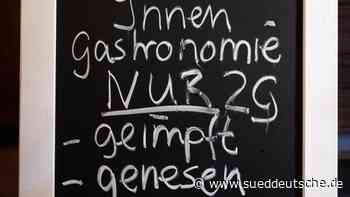 Innen
Gastronomie
NUR 2G
- geimpft
- genesen
© www.sueddeutsche.de